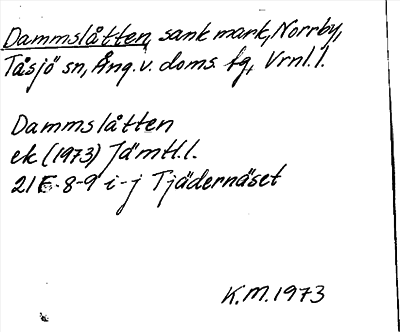 Dammslåtten, sank mark, Norrby,
Tåsjö sn, Ång. v. doms. fg, Vrnl. l.
Dammslåtten
ek (1973) Jämtl. l.
21E-8-9 i-j Tjädernäset
K.M. 1973